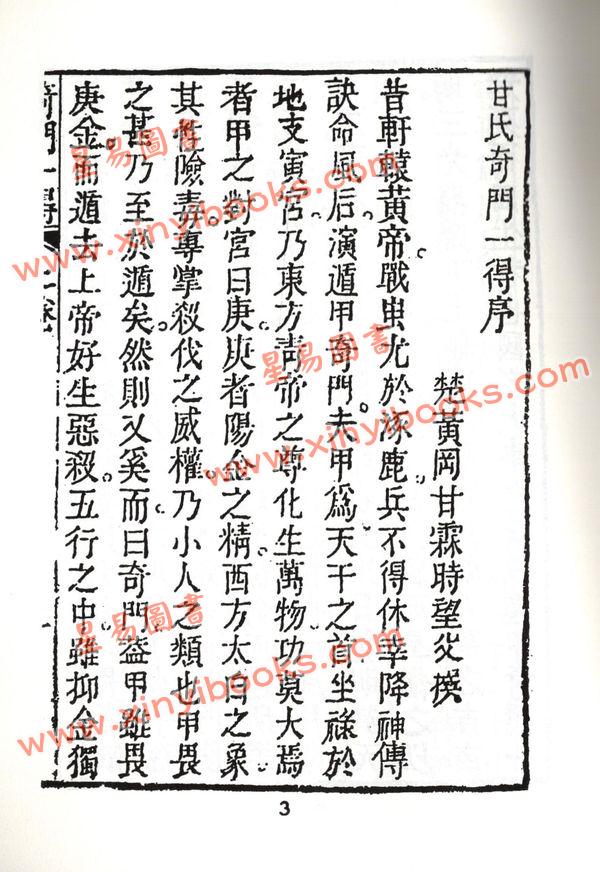 甘氏奇門一得序
楚黃岡甘霖時望父撰
昔軒轅黃帝戰蚩尤於涿鹿兵不得休幸降神傳
訣命風后演遁甲奇門夫甲爲天干之首坐祿於
地支寅宮乃東方靑帝之尊化生萬物功莫大焉
者甲之對宮曰庚庚者陽金之精西方太白之象
其性險毒專掌殺伐之威權乃小人之類也甲畏
之甚乃至於遁矣然則又奚而曰奇門葢甲雖畏
庚金而遁去上帝好生惡殺五行之中雖抑金獨
奇門一得
3
星易圖書
www.xinyibooks.com
星易圖書
www.xinyibooks.com
星易圖書
www.xinyibooks.com